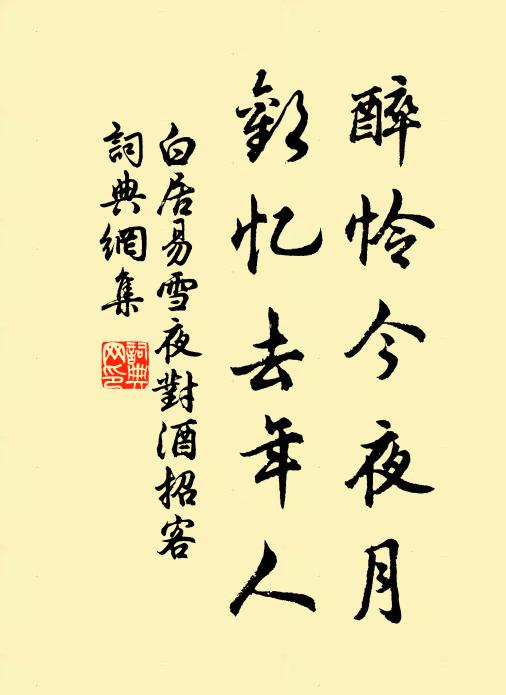 醉怜今夜月
歡忆去年人
白居易雪夜對酒招客
詞典網集
詞典
网印